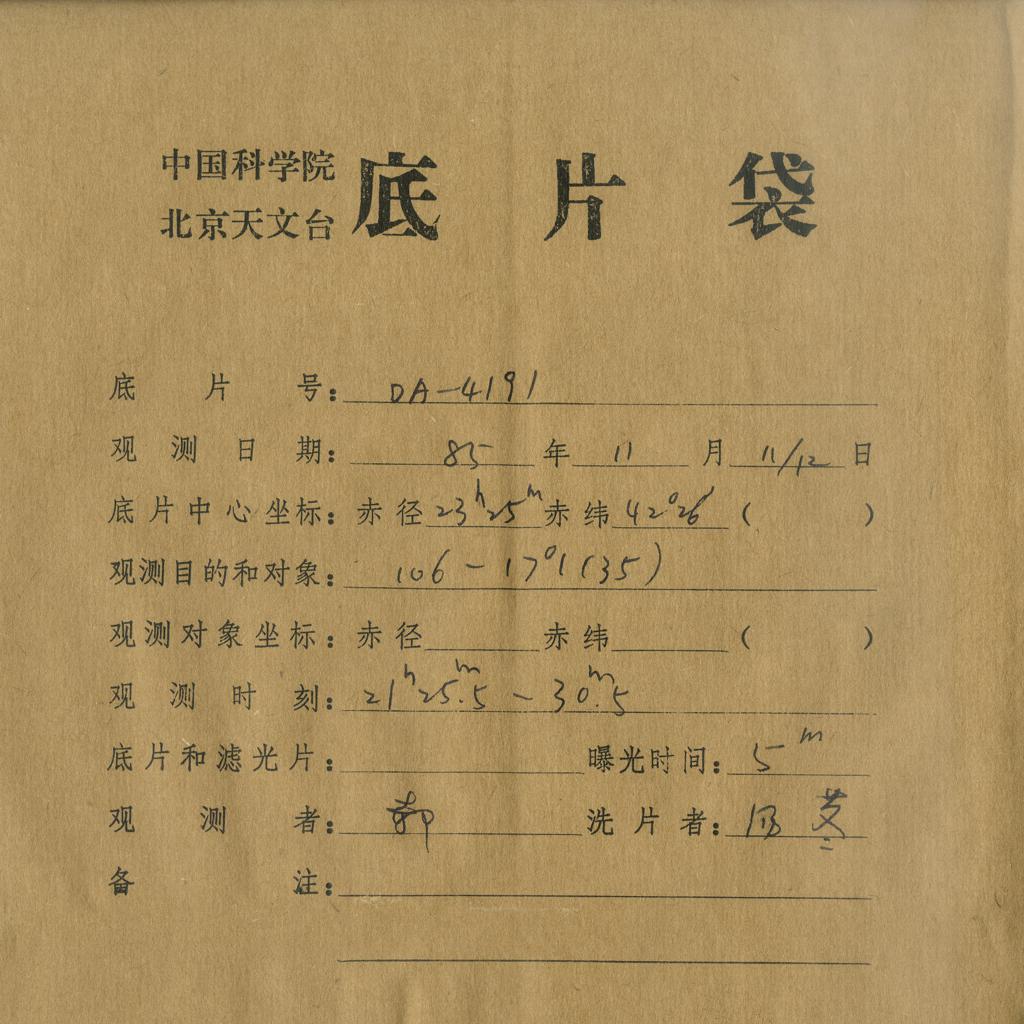 中国科学院
北京天文台
底片袋
底片号: DA-4191
观测日期: 85年11月11/12日
底片中心坐标: 赤径23ʰ25ᵐ赤纬42°26′( )
观测目的和对象: 106-17°1(35)
观测对象坐标: 赤径 赤纬 ( )
观测时刻: 21ʰ25ᵐ.5-30ᵐ.5
底片和滤光片: 曝光时间: 5ᵐ
观测者: 郝 洗片者:
备注: